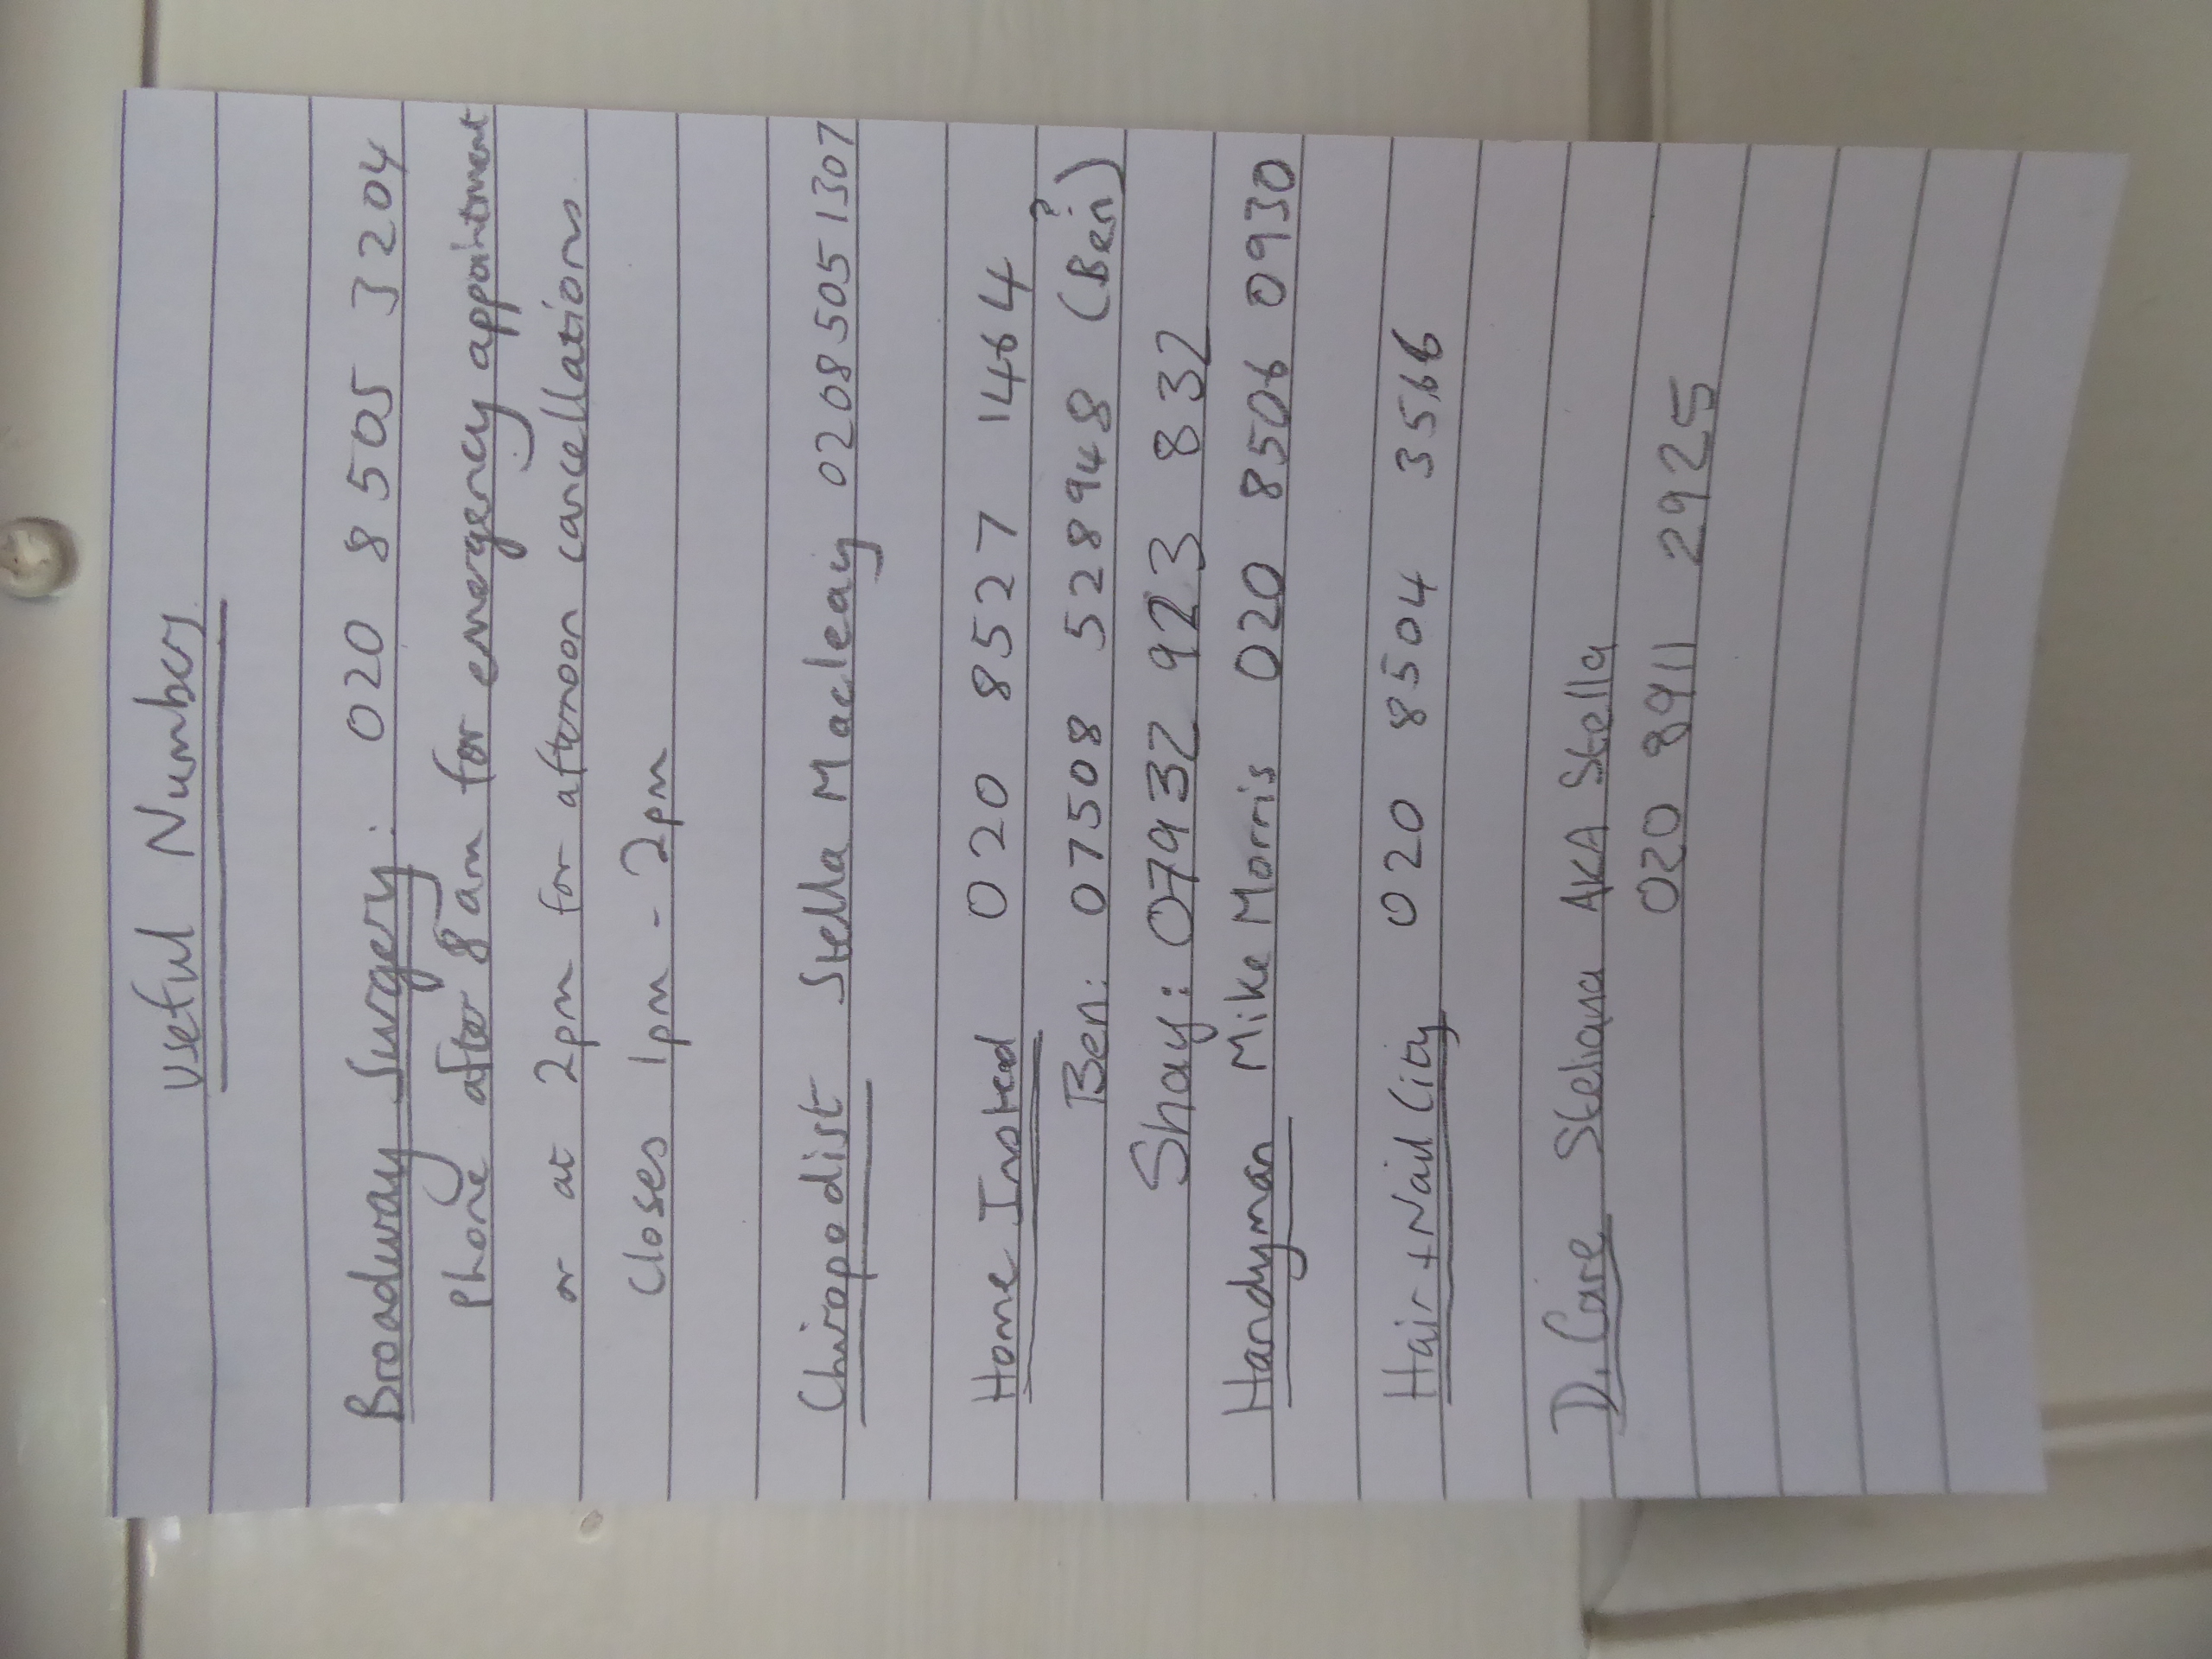 Useful Numbers
Broadway Surgery: 020 8505 3204
Phone after 8am for emergency appointment
or at 2pm for afternoon cancellations
Closes 1pm - 2pm
Chiropodist Stella Macleay 0208505 1307
Home Instead 020 8527 1464
Ben: 07508 528948 (Ben?)
Shay: 07932 923 832
Handyman Mike Morris 020 8506 0930
Hair + Nail City 020 8504 3566
D. Care Steliana AKA Stella
020 8911 2925